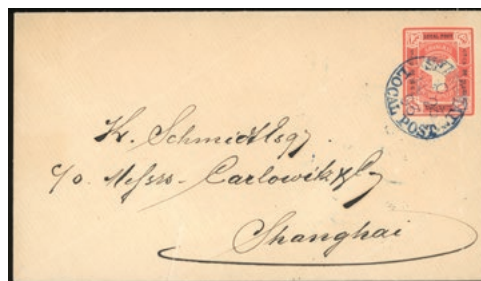 LOCAL POST
LOCAL POST
K. Schmidt Esqr.
c/o. Messrs. Carlowitz & Co
Shanghai